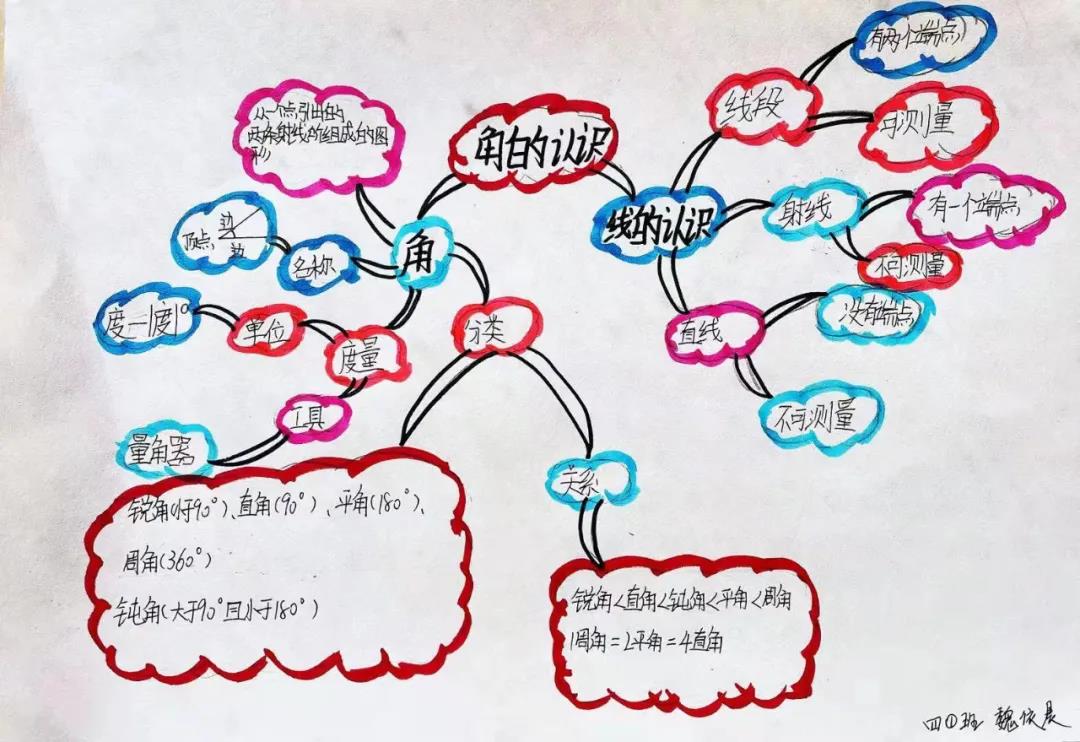 角的认识
线的认识
线段
有两个端点
可测量
射线
有一个端点
不可测量
直线
没有端点
不可测量
角
从一个点引出的
两条射线所组成的图
形
名称
顶点
边
边
度量
单位
度一1度1°
工具
量角器
分类
锐角(小于90°)、直角(90°)、平角(180°)、
周角(360°)
钝角(大于90°且小于180°)
关系
锐角<直角<钝角<平角<周角
1周角=2平角=4直角
四①班 魏依晨